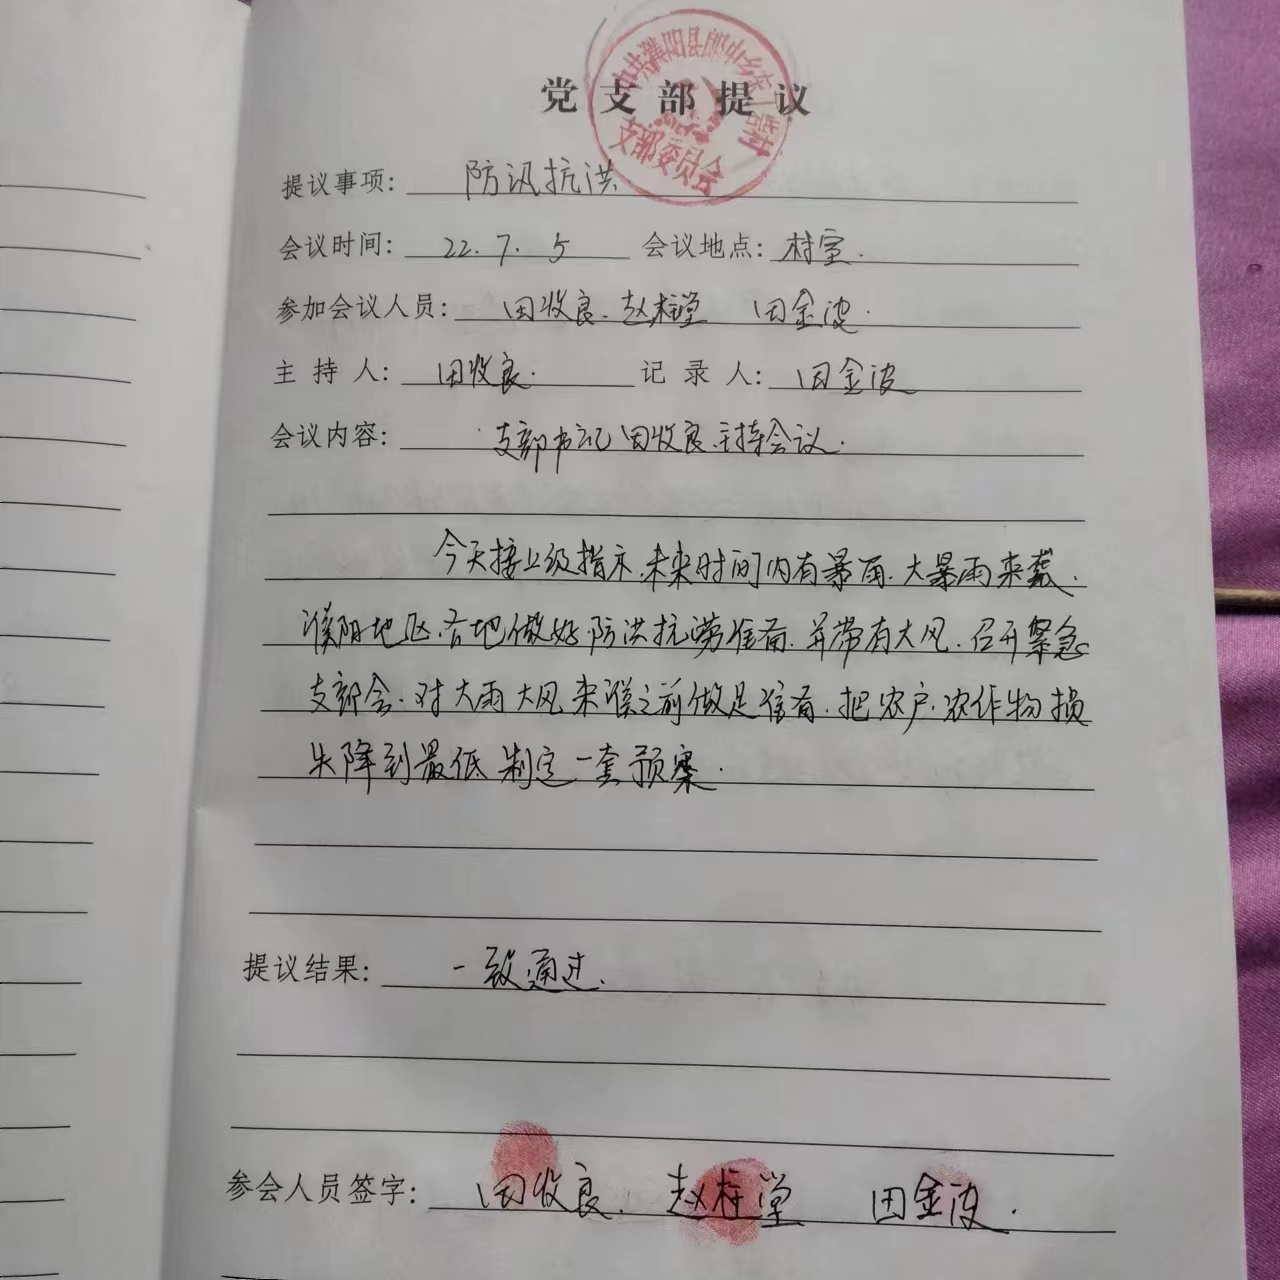 党支部提议
中共濮阳县郎中乡
支部委员会
提议事项: 防汛抗洪
会议时间: 22.7.5 会议地点: 村室.
参加会议人员: 田收良. 赵桂堂 田金波.
主持人: 田收良. 记录人: 田金波
会议内容: 支部书记田收良主持会议.
今天接上级指示.未来时间内有暴雨.大暴雨来袭.
濮阳地区.各地做好防洪抗涝准备.并带有大风.召开紧急
支部会.对大雨大风来濮之前做足准备.把农户.农作物损
失降到最低 制定一套预案.
提议结果: 一致通过.
参会人员签字: 田收良. 赵桂堂 田金波.